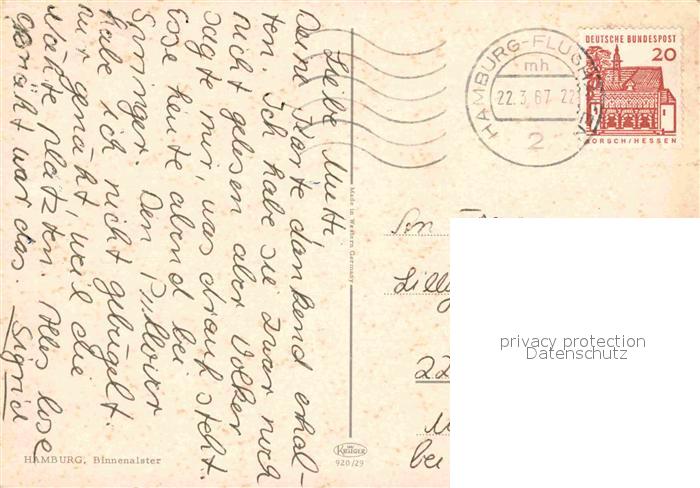 Liebe Mutti
Deine Karte dankend erhal-
ten. Ich habe sie zwar noch
nicht gelesen aber Volker
sagte mir, was drauf steht.
Esse heute abend bei
Springer. Den Pullover
habe ich nicht gebügelt.
nur genäht, weil die
Nähte platzten. Alles lose
genäht war das. Sigrid
HAMBURG, Binnenalster
Made in Western Germany
KRÜGER
920/29
HAMBURG-FLUGHAFEN
mh
22.3.67-22
2
DEUTSCHE BUNDESPOST
20
LORSCH/HESSEN
Lilly
22
bei
privacy protection
Datenschutz